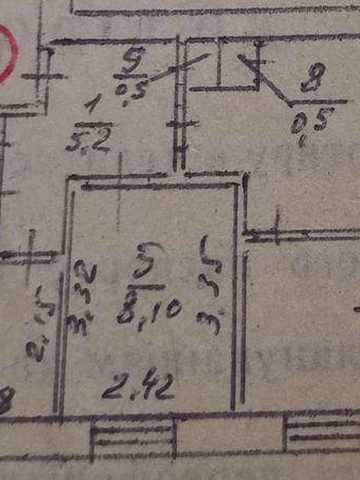 9
0,5
8
0,5
1
5.2
5
8,10
3,32
3.35
2.15
2.42
8